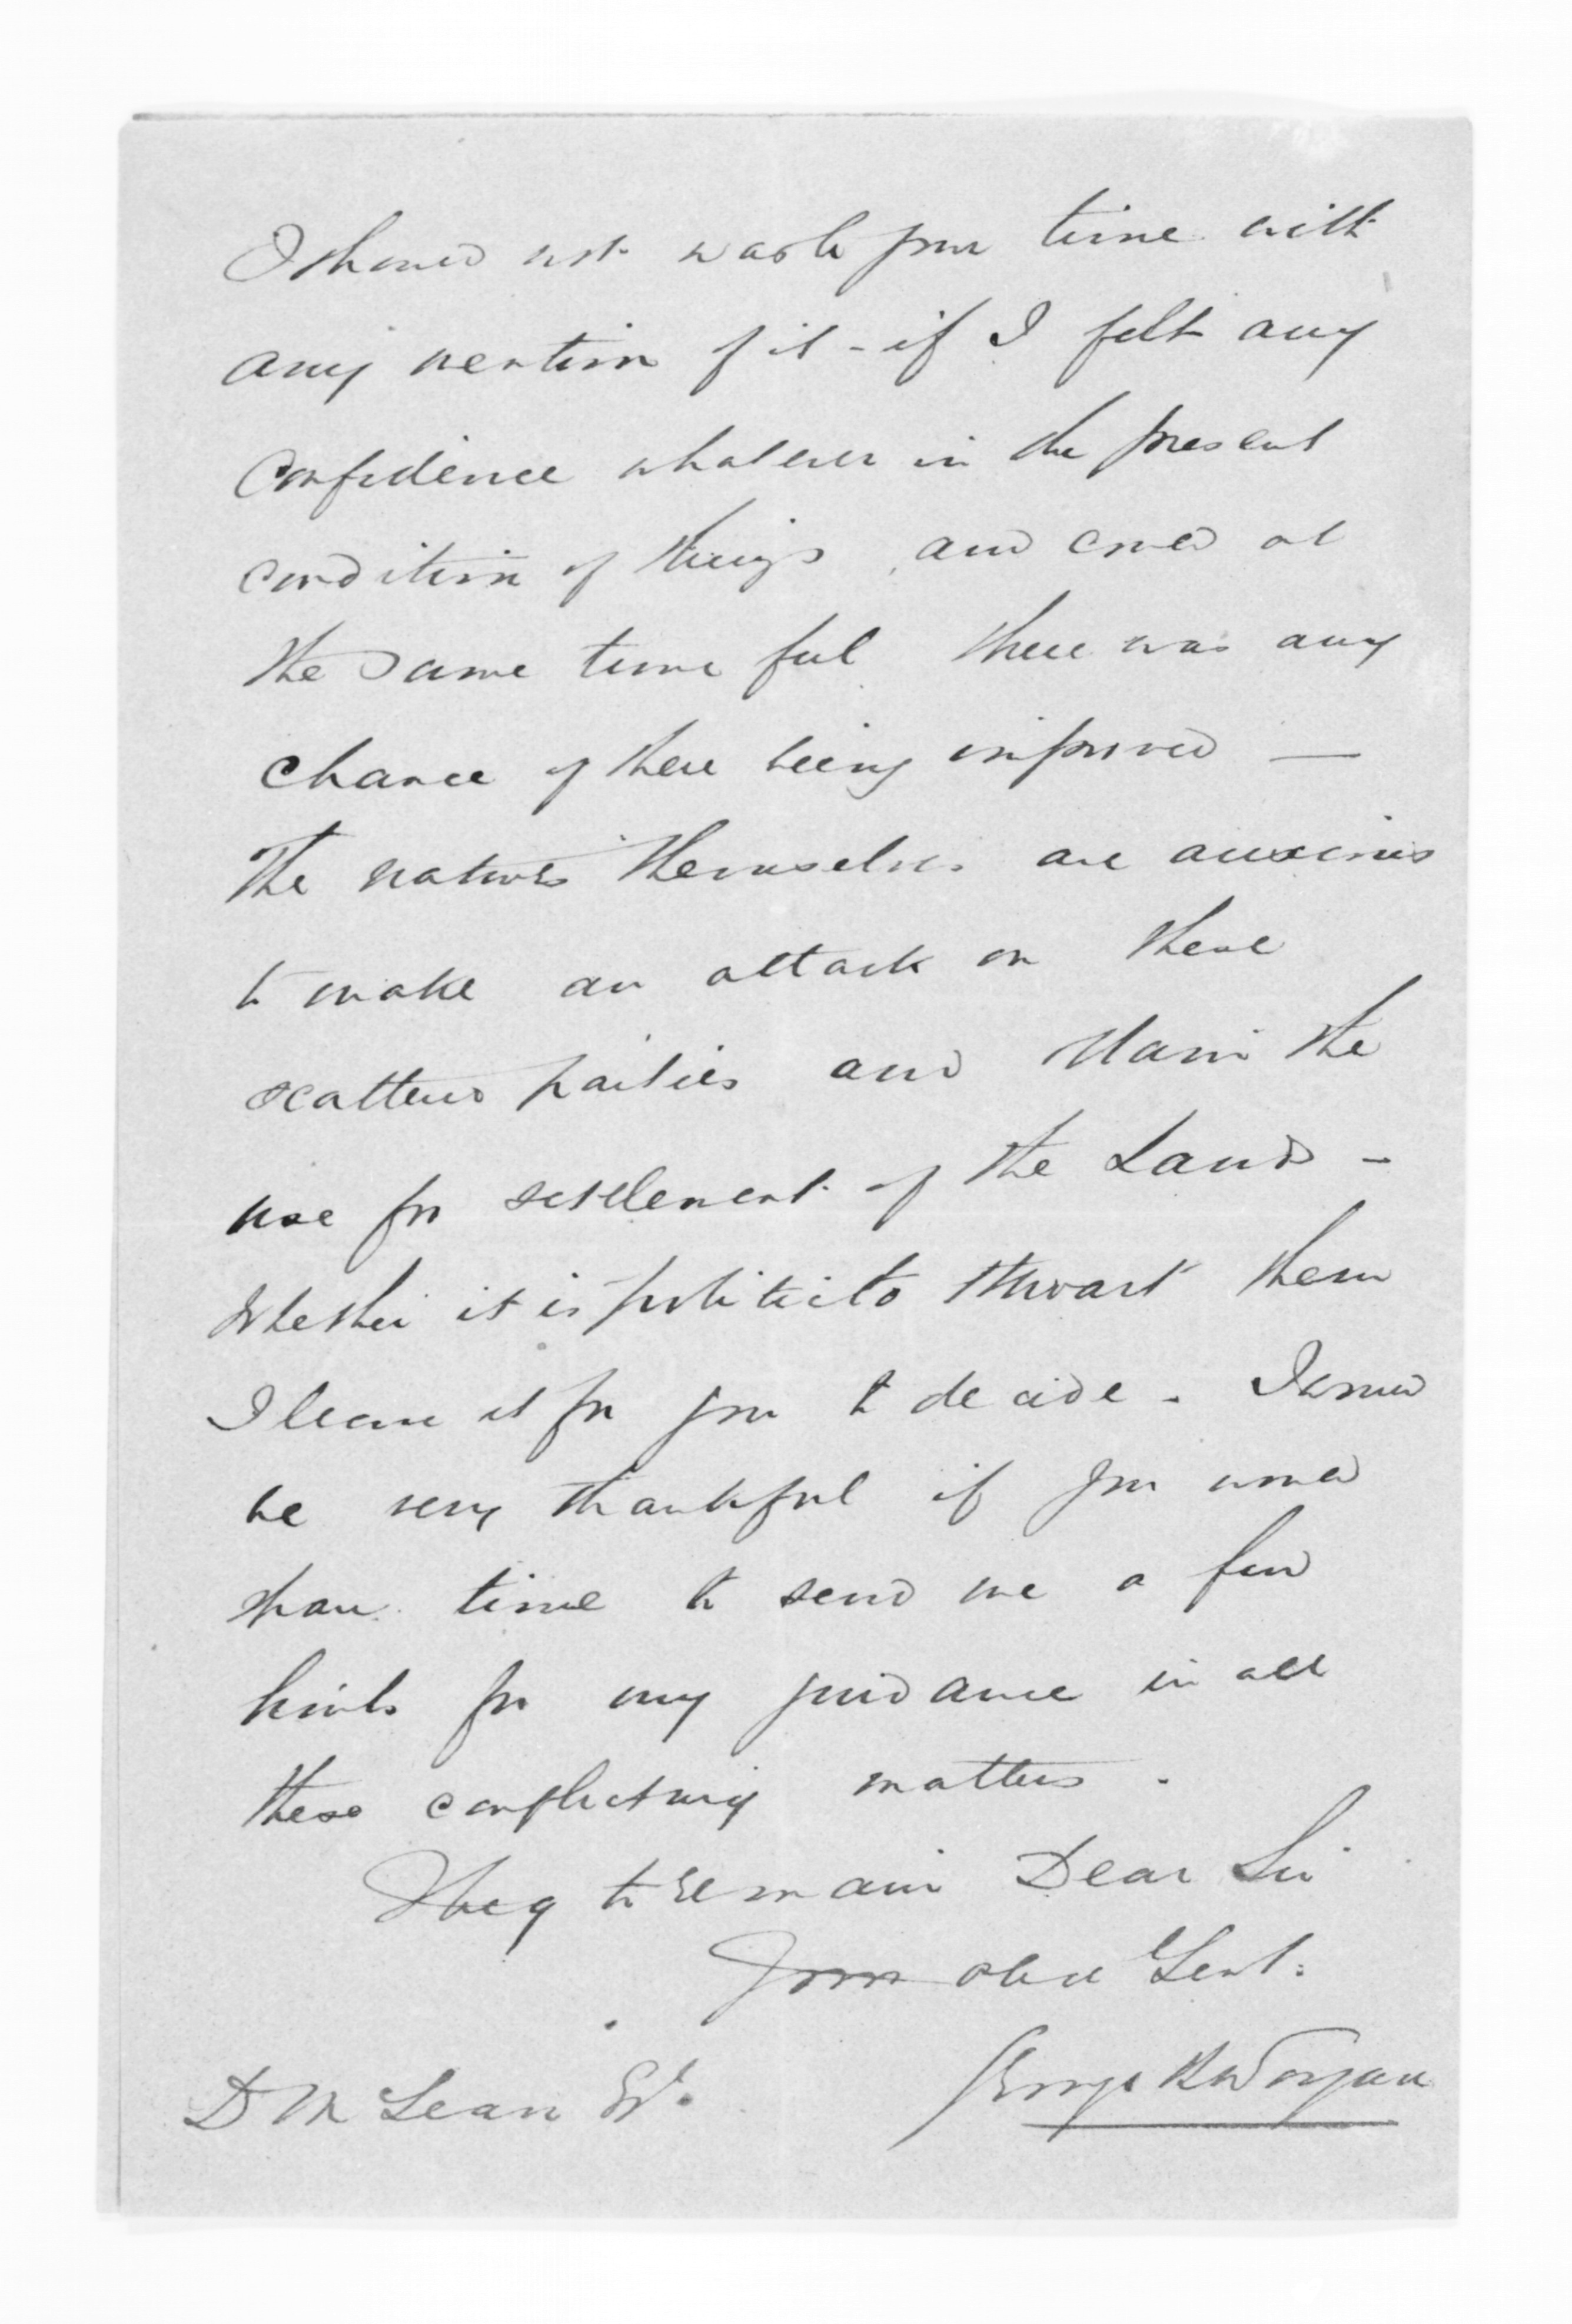 I should not waste your time with
any mention of it - if I felt any
Confidence whatever in the present
condition of things, and could at
the same time feel there was any
chance of there being improved —
The natives themselves are anxious
to make an attack on these
scattered parties and claim the
use for settlement of the Lands -
Whether it is politic to thwart them
I leave it for you to decide - I should
be very thankful if you would
spare time to send me a few
hints for my guidance in all
these conflicting matters.
I beg to remain Dear Sir
Your obed Servt:
George Worgan
D McLean Esq.